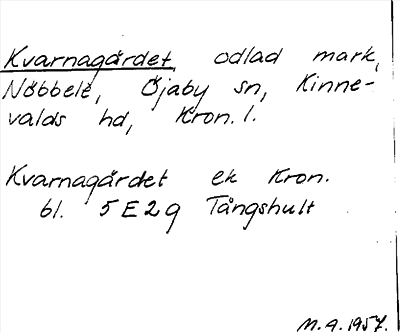 Kvarnagärdet, odlad mark,
Nöbbele, Öjaby sn, Kinne-
valds hd, Kron. l.
Kvarnagärdet ek Kron.
bl. 5E2g Tångshult
M.A. 1957.